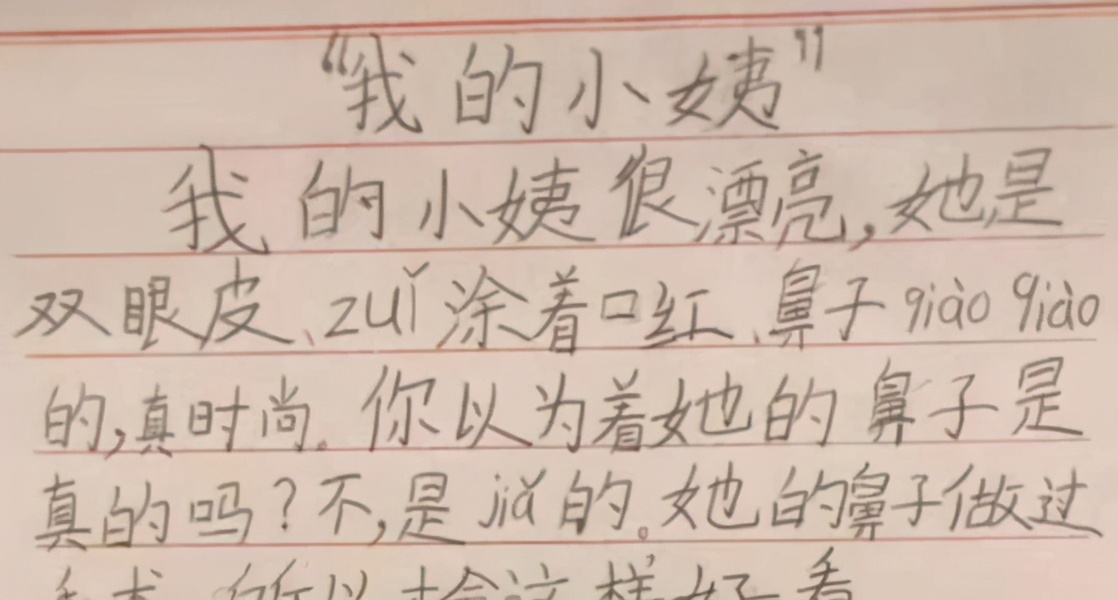 “我的小姨”
我的小姨很漂亮,她是
双眼皮、zuǐ涂着口红、鼻子qiào qiào
的,真时尚。你以为着她的鼻子是
真的吗?不,是jiǎ的。她的鼻子做过
手术,所以才会这样好看